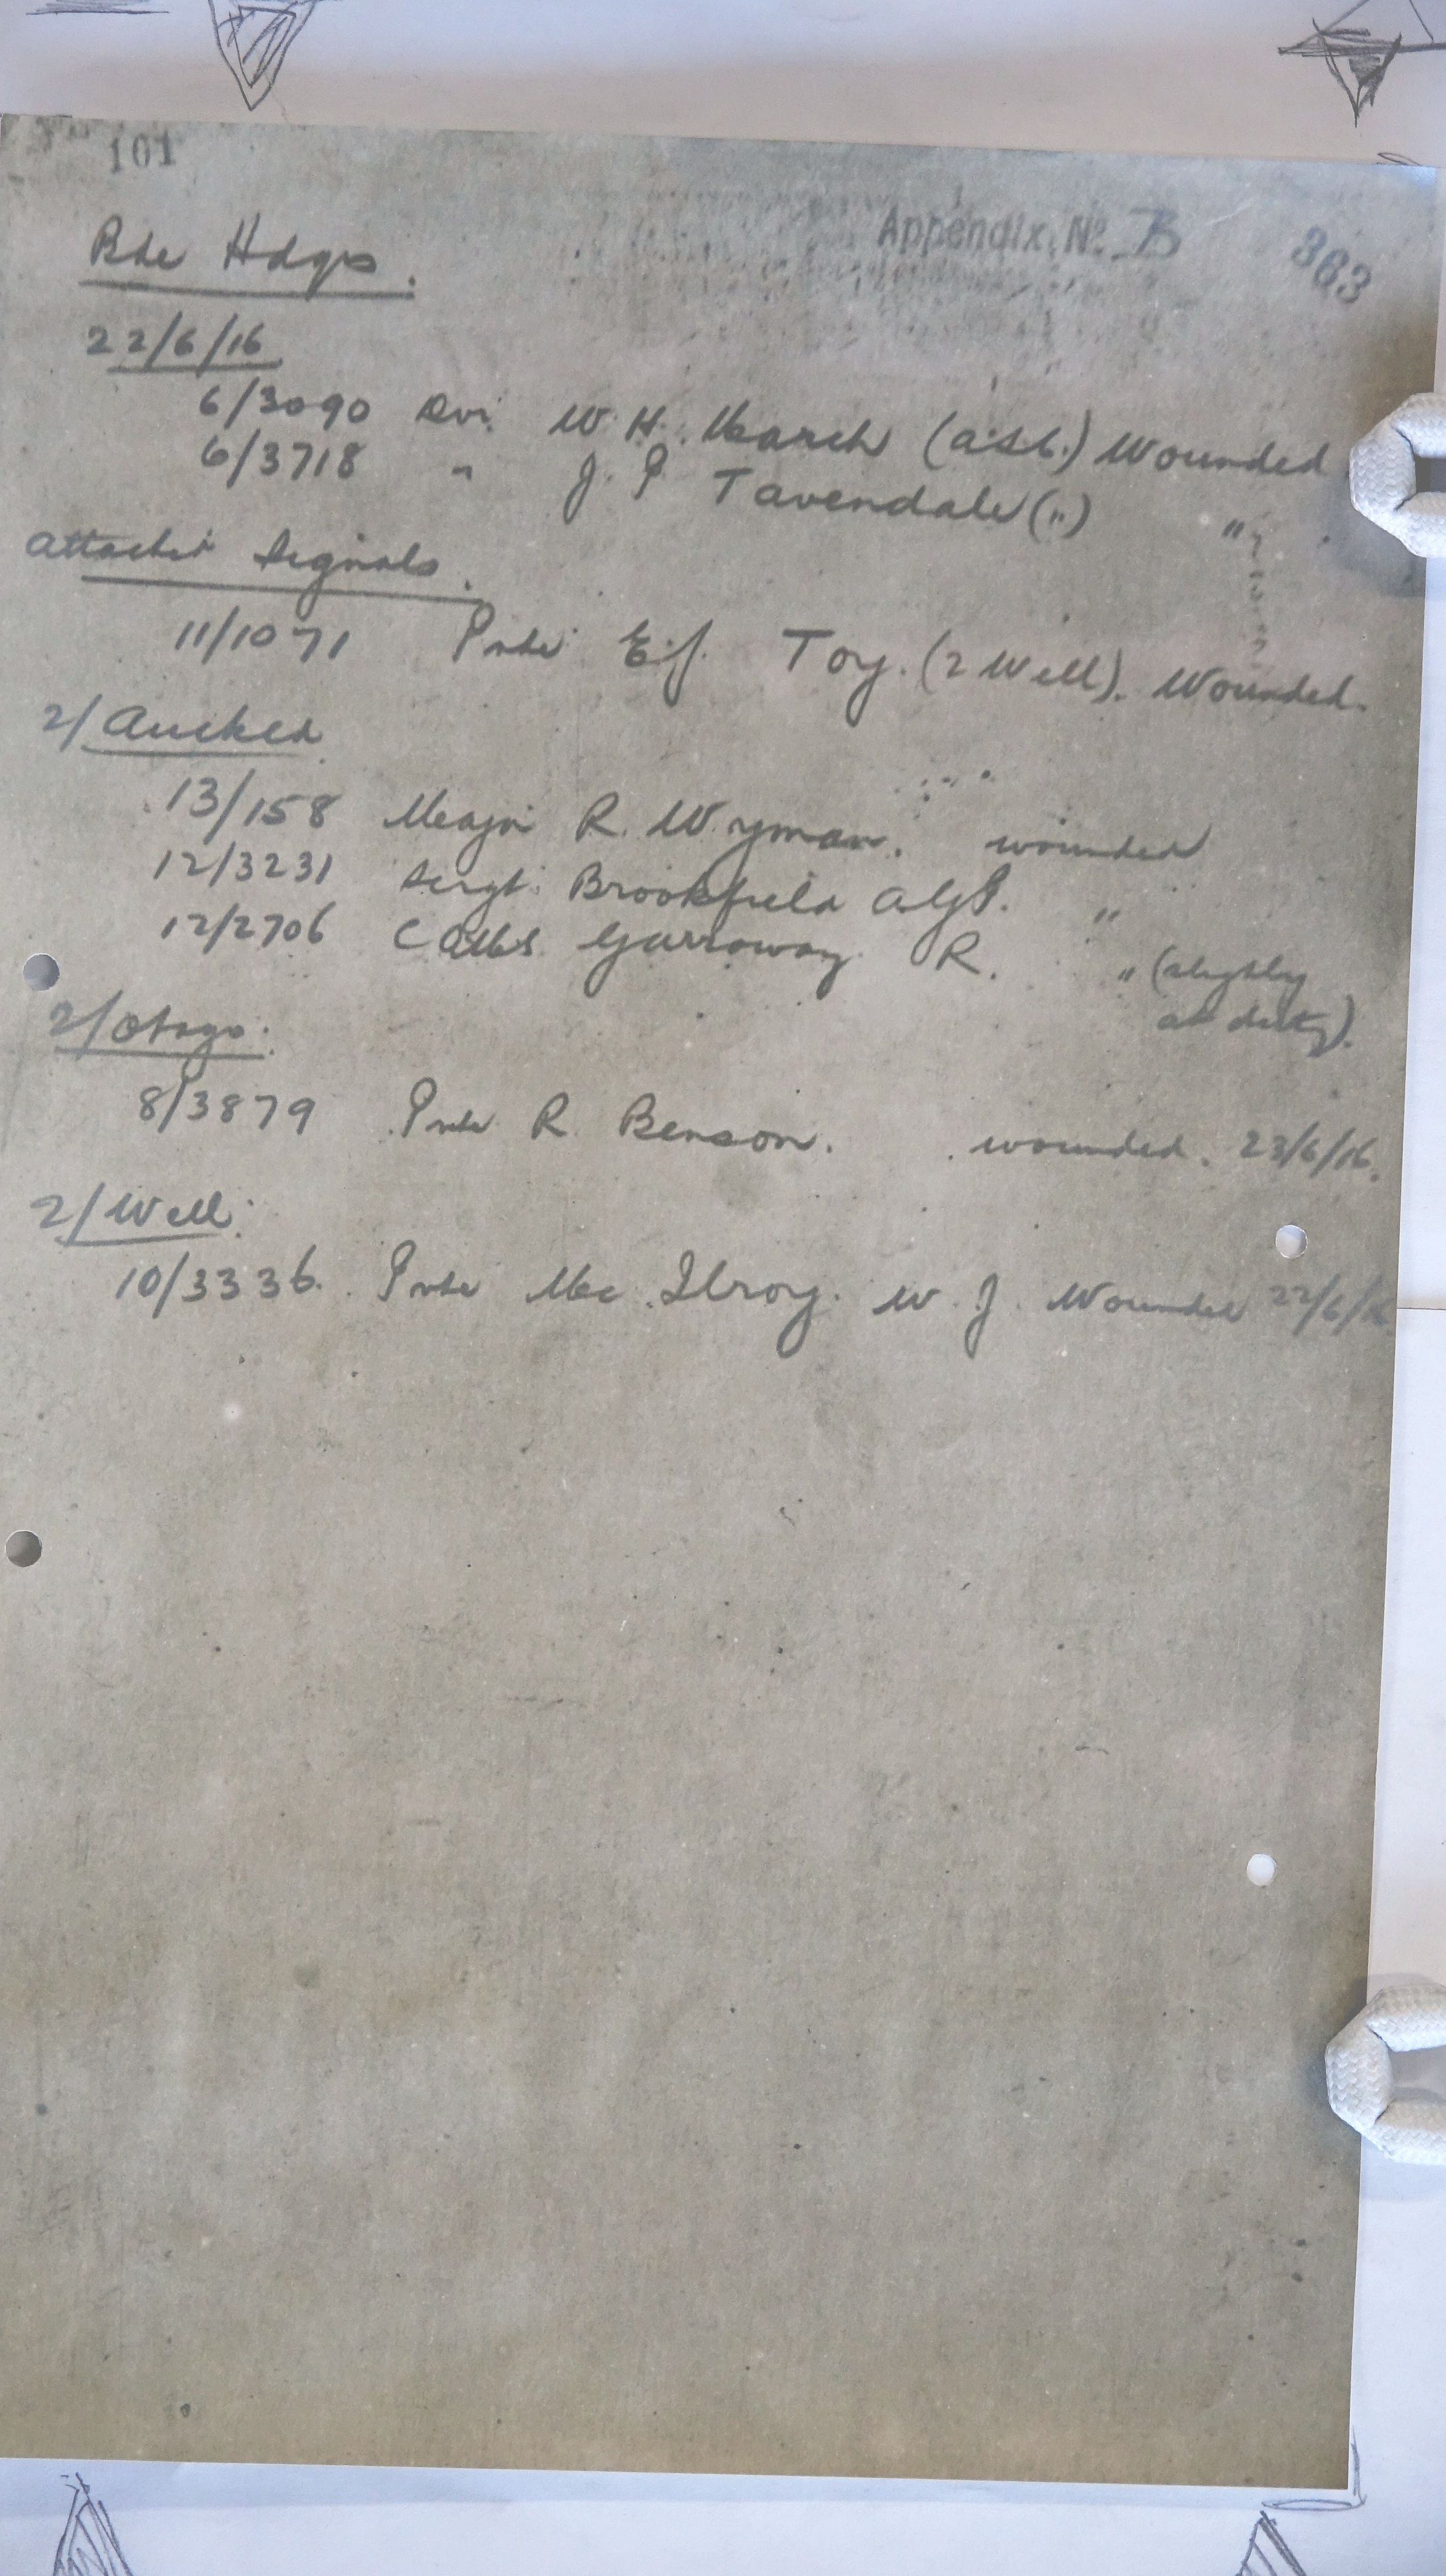 101
Appendix No. B
363
Bde Hdqrs.
22/6/16
6/3090 Dvr. W. H. March (A.S.C.) Wounded
6/3718 " J. P Tavendale (") "
attached Signals.
11/1071 Pnte E.J. Toy. (2 Well). Wounded.
2/Auckld
13/158 Major R. Wyman. wounded
12/3231 Sergt. Brookfield "
12/2706 Garroway R. " (slightly
at duty).
2/Otago.
8/3879 Pnte R Benson. wounded. 23/6/16.
2/Well.
10/3336. Pnte Mc Ilroy. W. J. Wounded 22/6/16